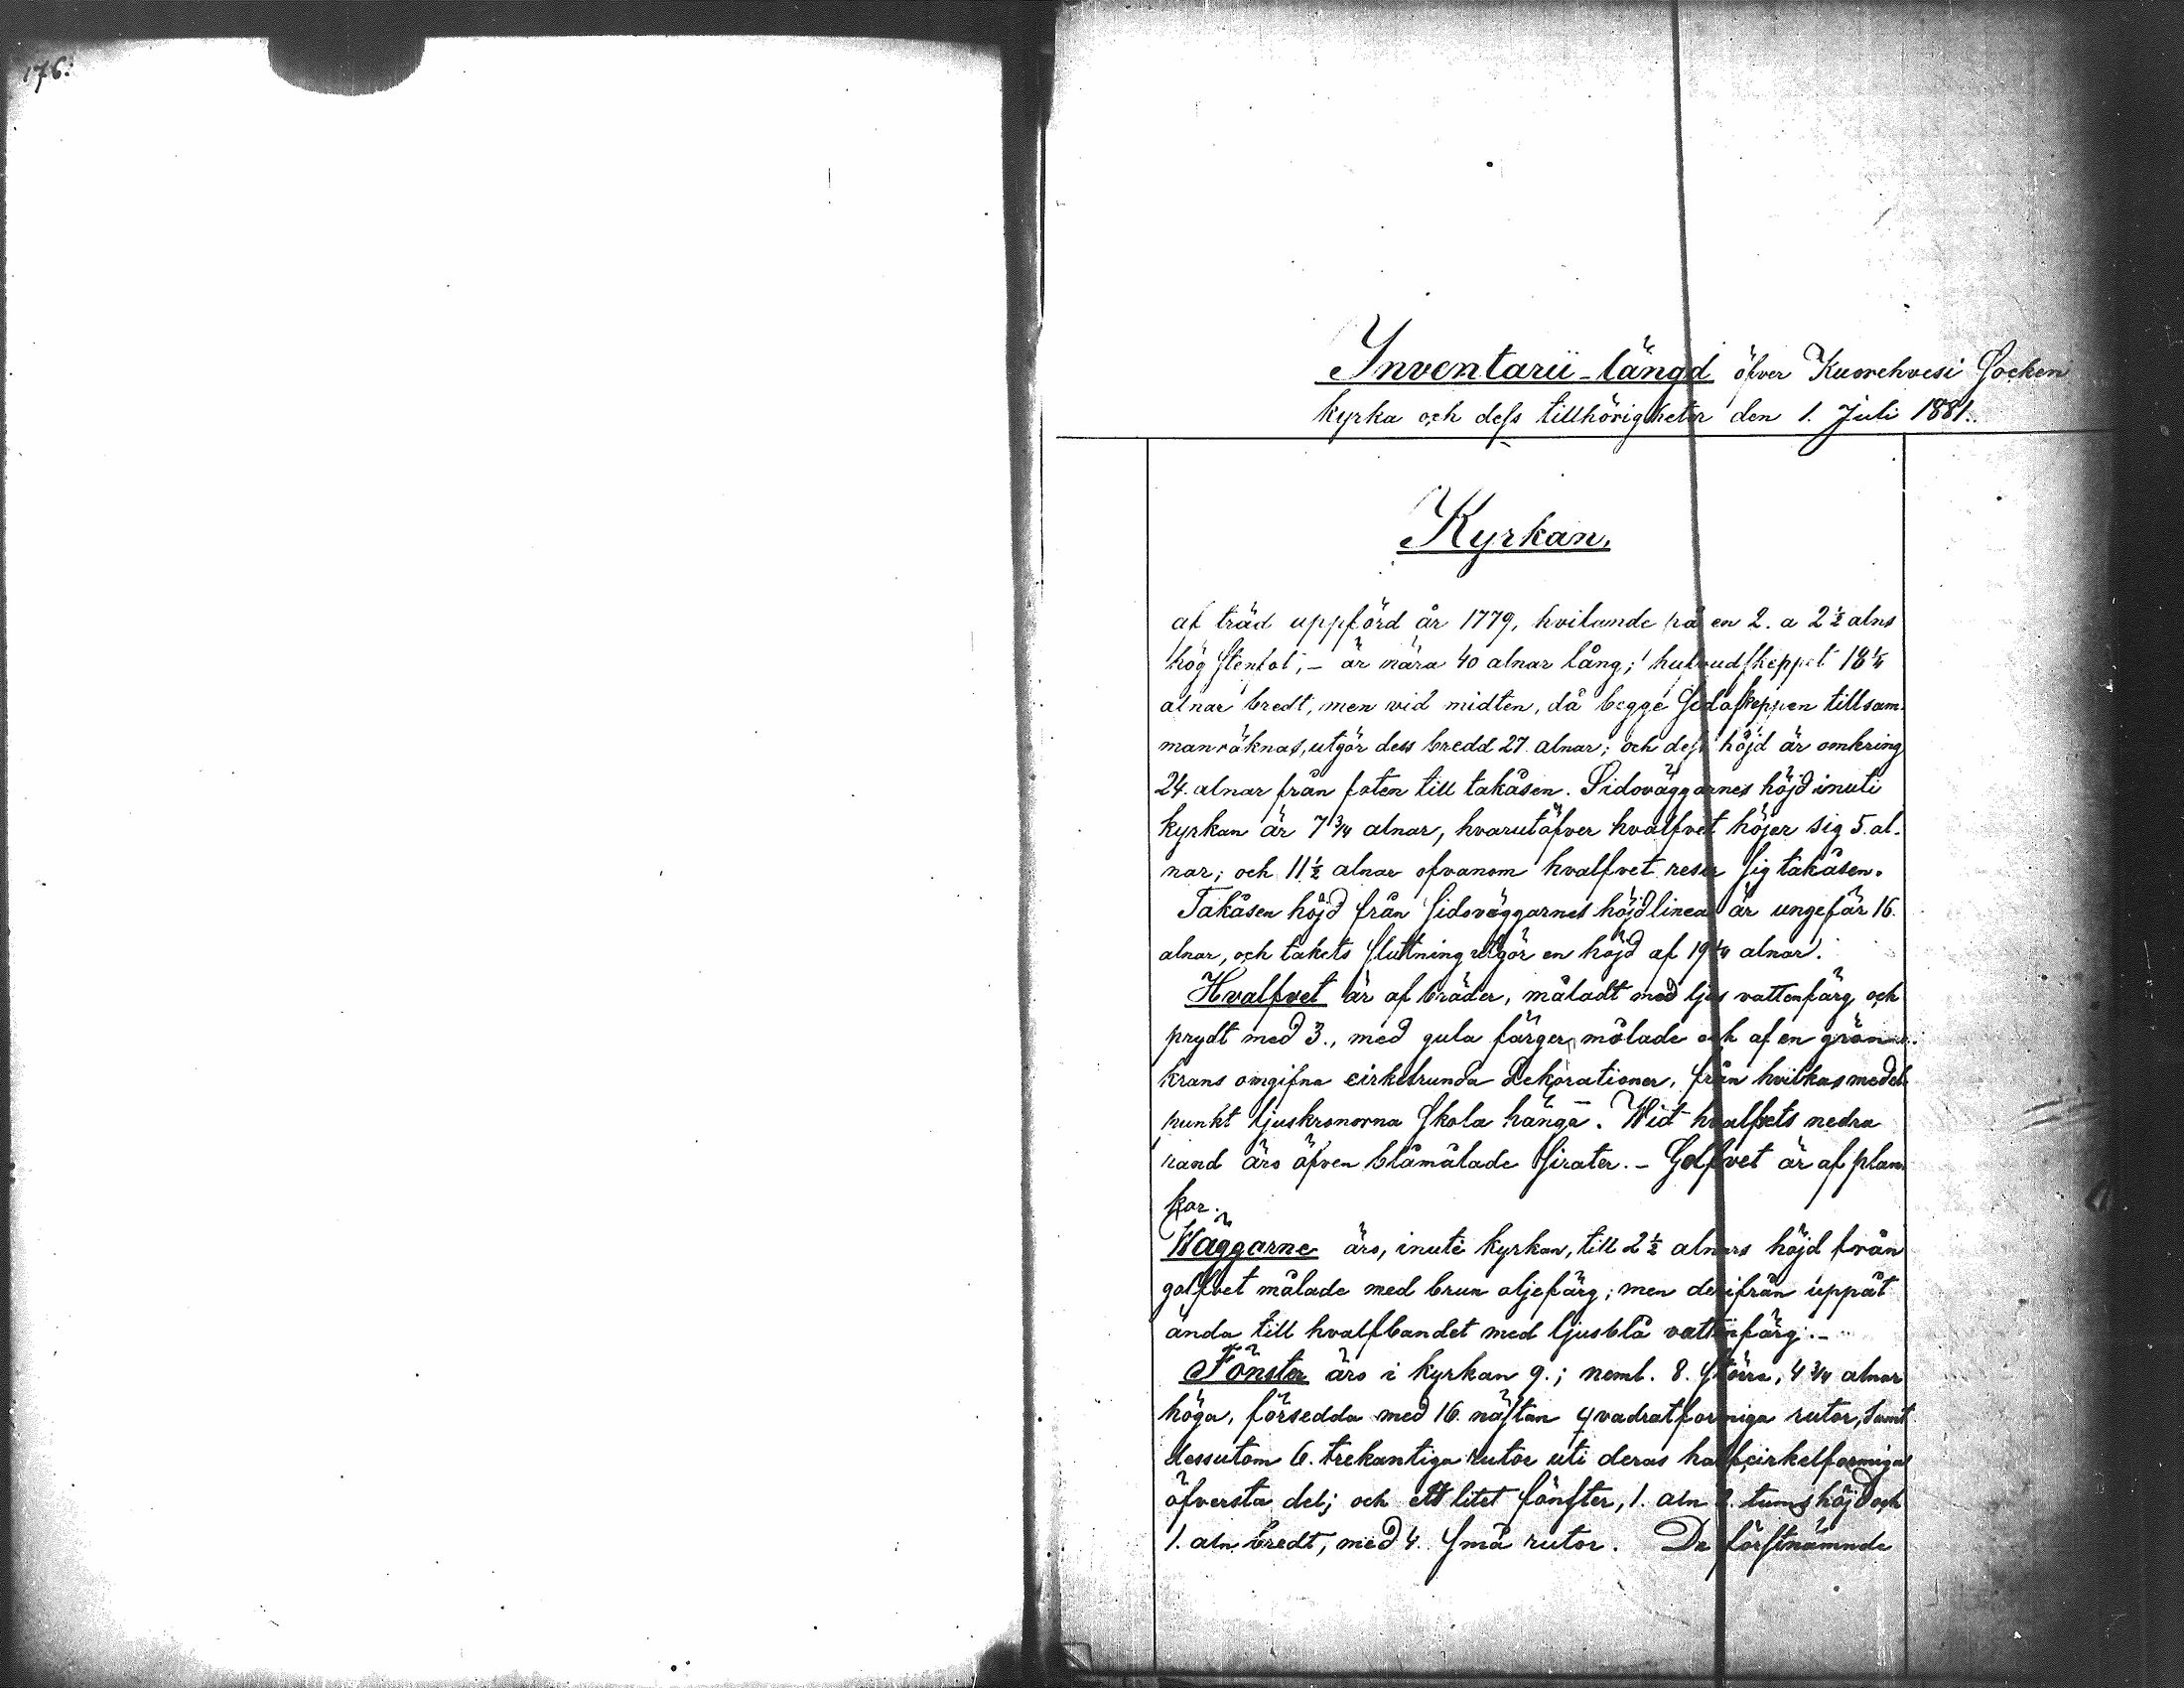 176.
Inventarii-längd öfver Kuorehvesi Socken
kyrka och dess tillhörigheter den 1. Juli 1881.
Kyrkan.
af träd uppförd år 1779, hvilande på en 2. a 2 1/2 alns
hög stenfot; - är nära 40 alnar lång; hufvudskeppet 18 1/4
alnar bredt, men vid midten, då begge Sidoskeppen tillsam-
manräknas, utgör dess bredd 27. alnar; och dess höjd är omkring
24. alnar från foten till takåsen. Sidoväggarnes höjd inuti
kyrkan är 7 3/4 alnar, hvarutöfver hvalfvet höjer sig 5. al-
nar; och 11 1/2 alnar ofvanom hvalfvet reser sig takåsen.
Takåsen höjd från Sidoväggarnes höjdlinea är ungefär 16.
alnar, och takets sluttning utgör en höjd af 19 1/4 alnar.
Hvalfvet är af bräder, måladt med ljus vattenfärg och
prydt med 3., med gula färger målade och af en grön
krans omgifna cirkelrunda dekorationer, från hvilkas medel-
punkt ljuskronorna skola hänga. Wid hvalfvets nedra
rand äro äfven blåmålade sirater. - Golfvet är af plan-
kor.
Wäggarne äro, inuti kyrkan, till 2 1/2 alnars höjd från
golfvet målade med brun oljefärg; men derifrån uppåt
ända till hvalfbandet med ljusblå vattenfärg. -
Fönster äro i kyrkan 9.; neml. 8. större, 4 3/4 alnar
höga, försedda med 16. nästan qvadratformiga rutor, samt
dessutom 6. trekantiga rutor uti deras halfcirkelformiga
öfversta del; och ett litet fönster, 1. aln tums höjd och
1. aln bredt, med 4. små rutor. De förstnämnde